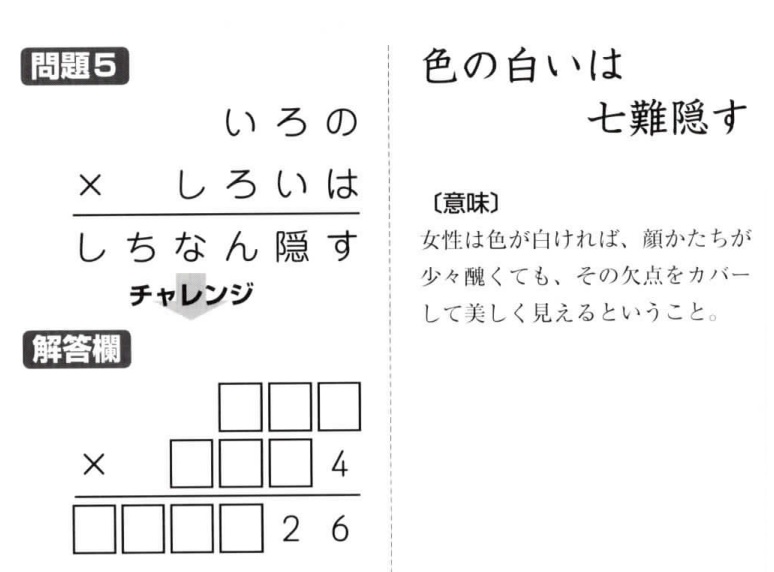 問題5
いろの
× しろいは
しちなん隠す
チャレンジ
解答欄
□□□
× □□□4
□□□□26
色の白いは
七難隠す
〔意味〕
女性は色が白ければ、顔かたちが
少々醜くても、その欠点をカバー
して美しく見えるということ。